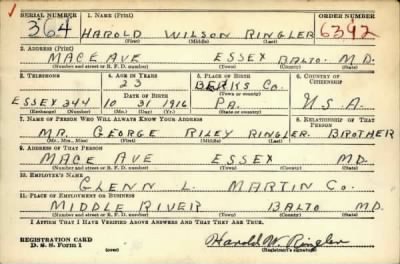 SERIAL NUMBER 1. NAME (Print) ORDER NUMBER
364 HAROLD WILSON RINGLER 6392
(First) (Middle) (Last)
2. ADDRESS (Print)
MACE AVE ESSEX BALTO. M.D.
(Number and street or R. F. D. number) (Town) (County) (State)
3. TELEPHONE 4. AGE IN YEARS 5. PLACE OF BIRTH 6. COUNTRY OF CITIZENSHIP
23 BERKS CO.
DATE OF BIRTH (Town or county)
ESSEX 244 10 31 1916 PA. U.S.A.
(Exchange) (Number) (Mo.) (Day) (Yr.) (State or country)
7. NAME OF PERSON WHO WILL ALWAYS KNOW YOUR ADDRESS 8. RELATIONSHIP OF THAT PERSON
MR. GEORGE RILEY RINGLER BROTHER
(Mr., Mrs., Miss) (First) (Middle) (Last)
9. ADDRESS OF THAT PERSON
MACE AVE ESSEX MD.
(Number and street or R. F. D. number) (Town) (County) (State)
10. EMPLOYER'S NAME
GLENN L. MARTIN CO.
11. PLACE OF EMPLOYMENT OR BUSINESS
MIDDLE RIVER BALTO MD.
(Number and street or R. F. D. number) (Town) (County) (State)
I AFFIRM THAT I HAVE VERIFIED ABOVE ANSWERS AND THAT THEY ARE TRUE.
REGISTRATION CARD
D. S. S. FORM 1 (over) Harold W. Ringler
(Registrant's signature)